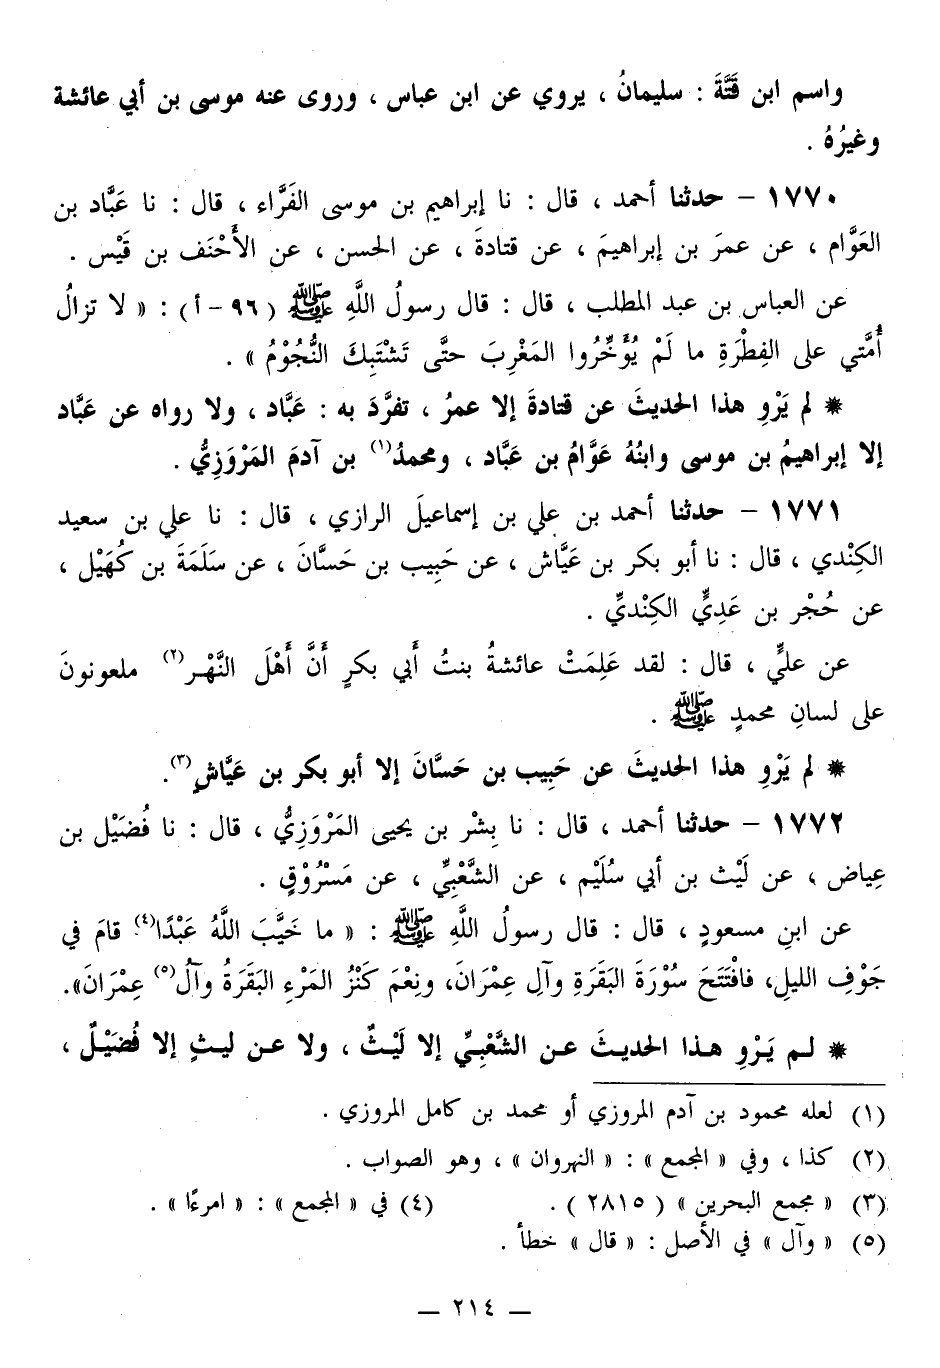 واسم ابن قَتَّةَ : سليمانُ ، يروي عن ابن عباس ، وروى عنه موسى بن أبي عائشة
وغيرُهُ .
١٧٧٠ – حدثنا أحمد ، قال : نا إبراهيم بن موسى الفَرَّاء ، قال : نا عَبَّاد بن
العَوَّام ، عن عمرَ بن إبراهيمَ ، عن قتادةَ ، عن الحسن ، عن الأَحْنَف بن قَيْس .
عن العباس بن عبد المطلب ، قال : قال رسولُ اللَّهِ ﷺ ( ٩٦ – أ ) : « لا تزالُ
أُمَّتي على الفِطْرَةِ ما لَمْ يُؤَخِّرُوا المَغْرِبَ حتَّى تَشْتَبِكَ النُّجُوْمُ » .
* لم يَرْوِ هذا الحديثَ عن قتادةَ إلا عمرُ ، تفرَّدَ به : عَبَّاد ، ولا رواه عن عَبَّاد
إلا إبراهيمُ بن موسى وابنُهُ عَوَّامُ بن عَبَّاد ، ومحمدُ(١) بن آدمَ المَرْوَزِيُّ .
١٧٧١ – حدثنا أحمد بن علي بن إسماعيلَ الرازي ، قال : نا علي بن سعيد
الكِنْدي ، قال : نا أبو بكر بن عَيَّاش ، عن حَبِيب بن حَسَّانَ ، عن سَلَمَةَ بن كُهَيْل ،
عن حُجْر بن عَدِيٍّ الكِنْديِّ .
عن عليٍّ ، قال : لقد عَلِمَتْ عائشةُ بنتُ أَبي بكرٍ أَنَّ أَهْلَ النَّهْرِ(٢) ملعونونَ
على لسانِ محمدٍ ﷺ .
* لم يَرْوِ هذا الحديثَ عن حَبِيب بن حَسَّانَ إلا أبو بكر بن عَيَّاشٍ(٣).
١٧٧٢ – حدثنا أحمد ، قال : نا بِشْر بن يحيى المَرْوَزِيُّ ، قال : نا فُضَيْل بن
عِياض ، عن لَيْث بن أبي سُلَيْم ، عن الشَّعْبِيِّ ، عن مَسْرُوْقٍ .
عن ابنِ مسعودٍ ، قال : قال رسولُ اللَّهِ ﷺ : « ما خَيَّبَ اللَّهُ عَبْدًا(٤) قامَ في
جَوْفِ الليلِ، فافْتَتَحَ سُوْرَةَ البَقَرَةِ وآلِ عِمْرَانَ، ونِعْمَ كَنْزُ المَرْءِ البَقَرَةُ وآلُ(٥) عِمْرَانَ».
* لم يَرْوِ هذا الحديثَ عن الشَّعْبِيِّ إلا لَيْثٌ ، ولا عن ليثٍ إلا فُضَيْلٌ ،
(١) لعله محمود بن آدم المروزي أو محمد بن كامل المروزي .
(٢) كذا ، وفي « المجمع » : « النهروان » ، وهو الصواب .
(٣) « مجمع البحرين » ( ٢٨١٥ ) . (٤) في « المجمع » : « امرءًا » .
(٥) « وآل » في الأصل : « قال » خطأ .
— ٢١٤ —